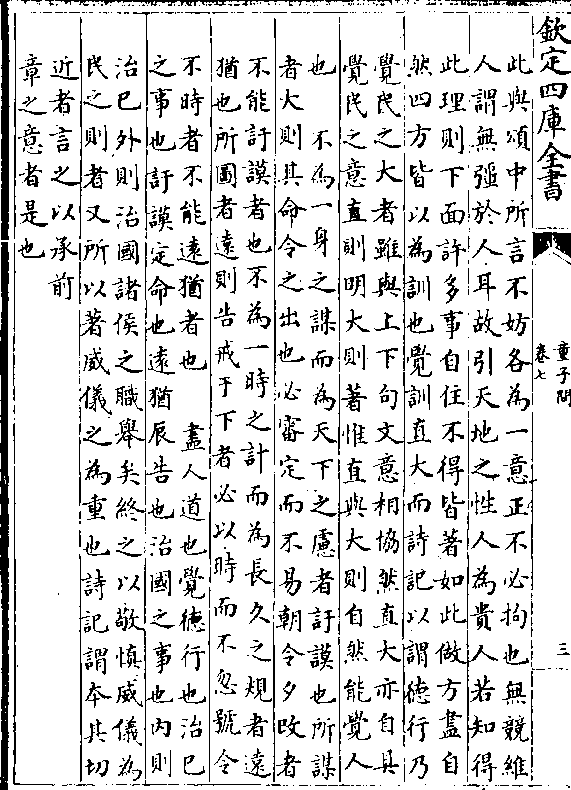 欽定四庫全書
童子問
卷七
三
此與頌中所言不妨各為一意正不必拘也無競維
人謂無彊於人耳故引天地之性人為貴人若知得
此理則下面許多事自住不得皆著如此做方盡自
然四方皆以為訓也覺訓直大而詩記以謂德行乃
覺民之大者雖與上下句文意相協然直大亦自具
覺民之意直則明大則著惟直與大則自然能覺人
也 不為一身之謀而為天下之慮者訏謨也所謀
者大則其命令之出也必審定而不易朝令夕改者
不能訏謨者也不為一時之計而為長久之規者遠
猶也所圖者遠則告戒于下者必以時而不忽號令
不時者不能遠猶者也 盡人道也覺德行也治已
之事也訏謨定命也遠猶辰告也治國之事也内則
治已外則治國諸侯之職舉矣終之以敬慎威儀為
民之則者又所以著威儀之為重也詩記謂本其切
近者言之以承前
章之意者是也